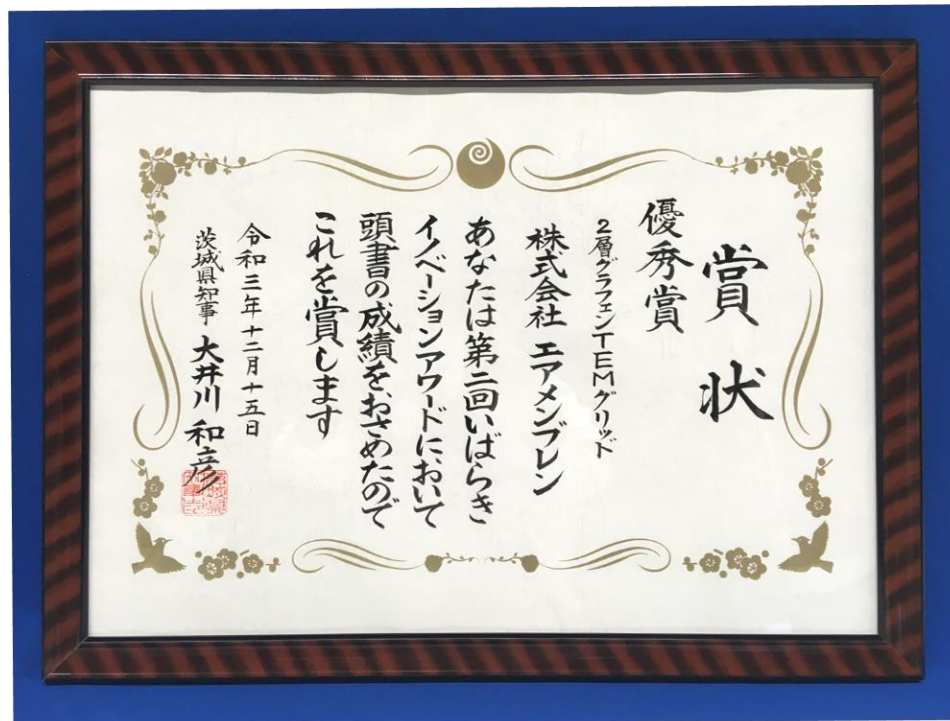 賞状
優秀賞
2層グラフェンTEMグリッド
株式会社 エアメンブレン
あなたは第二回いばらき
イノベーションアワードにおいて
頭書の成績をおさめたので
これを賞します
令和三年十二月十五日
茨城県知事 大井川 和彦